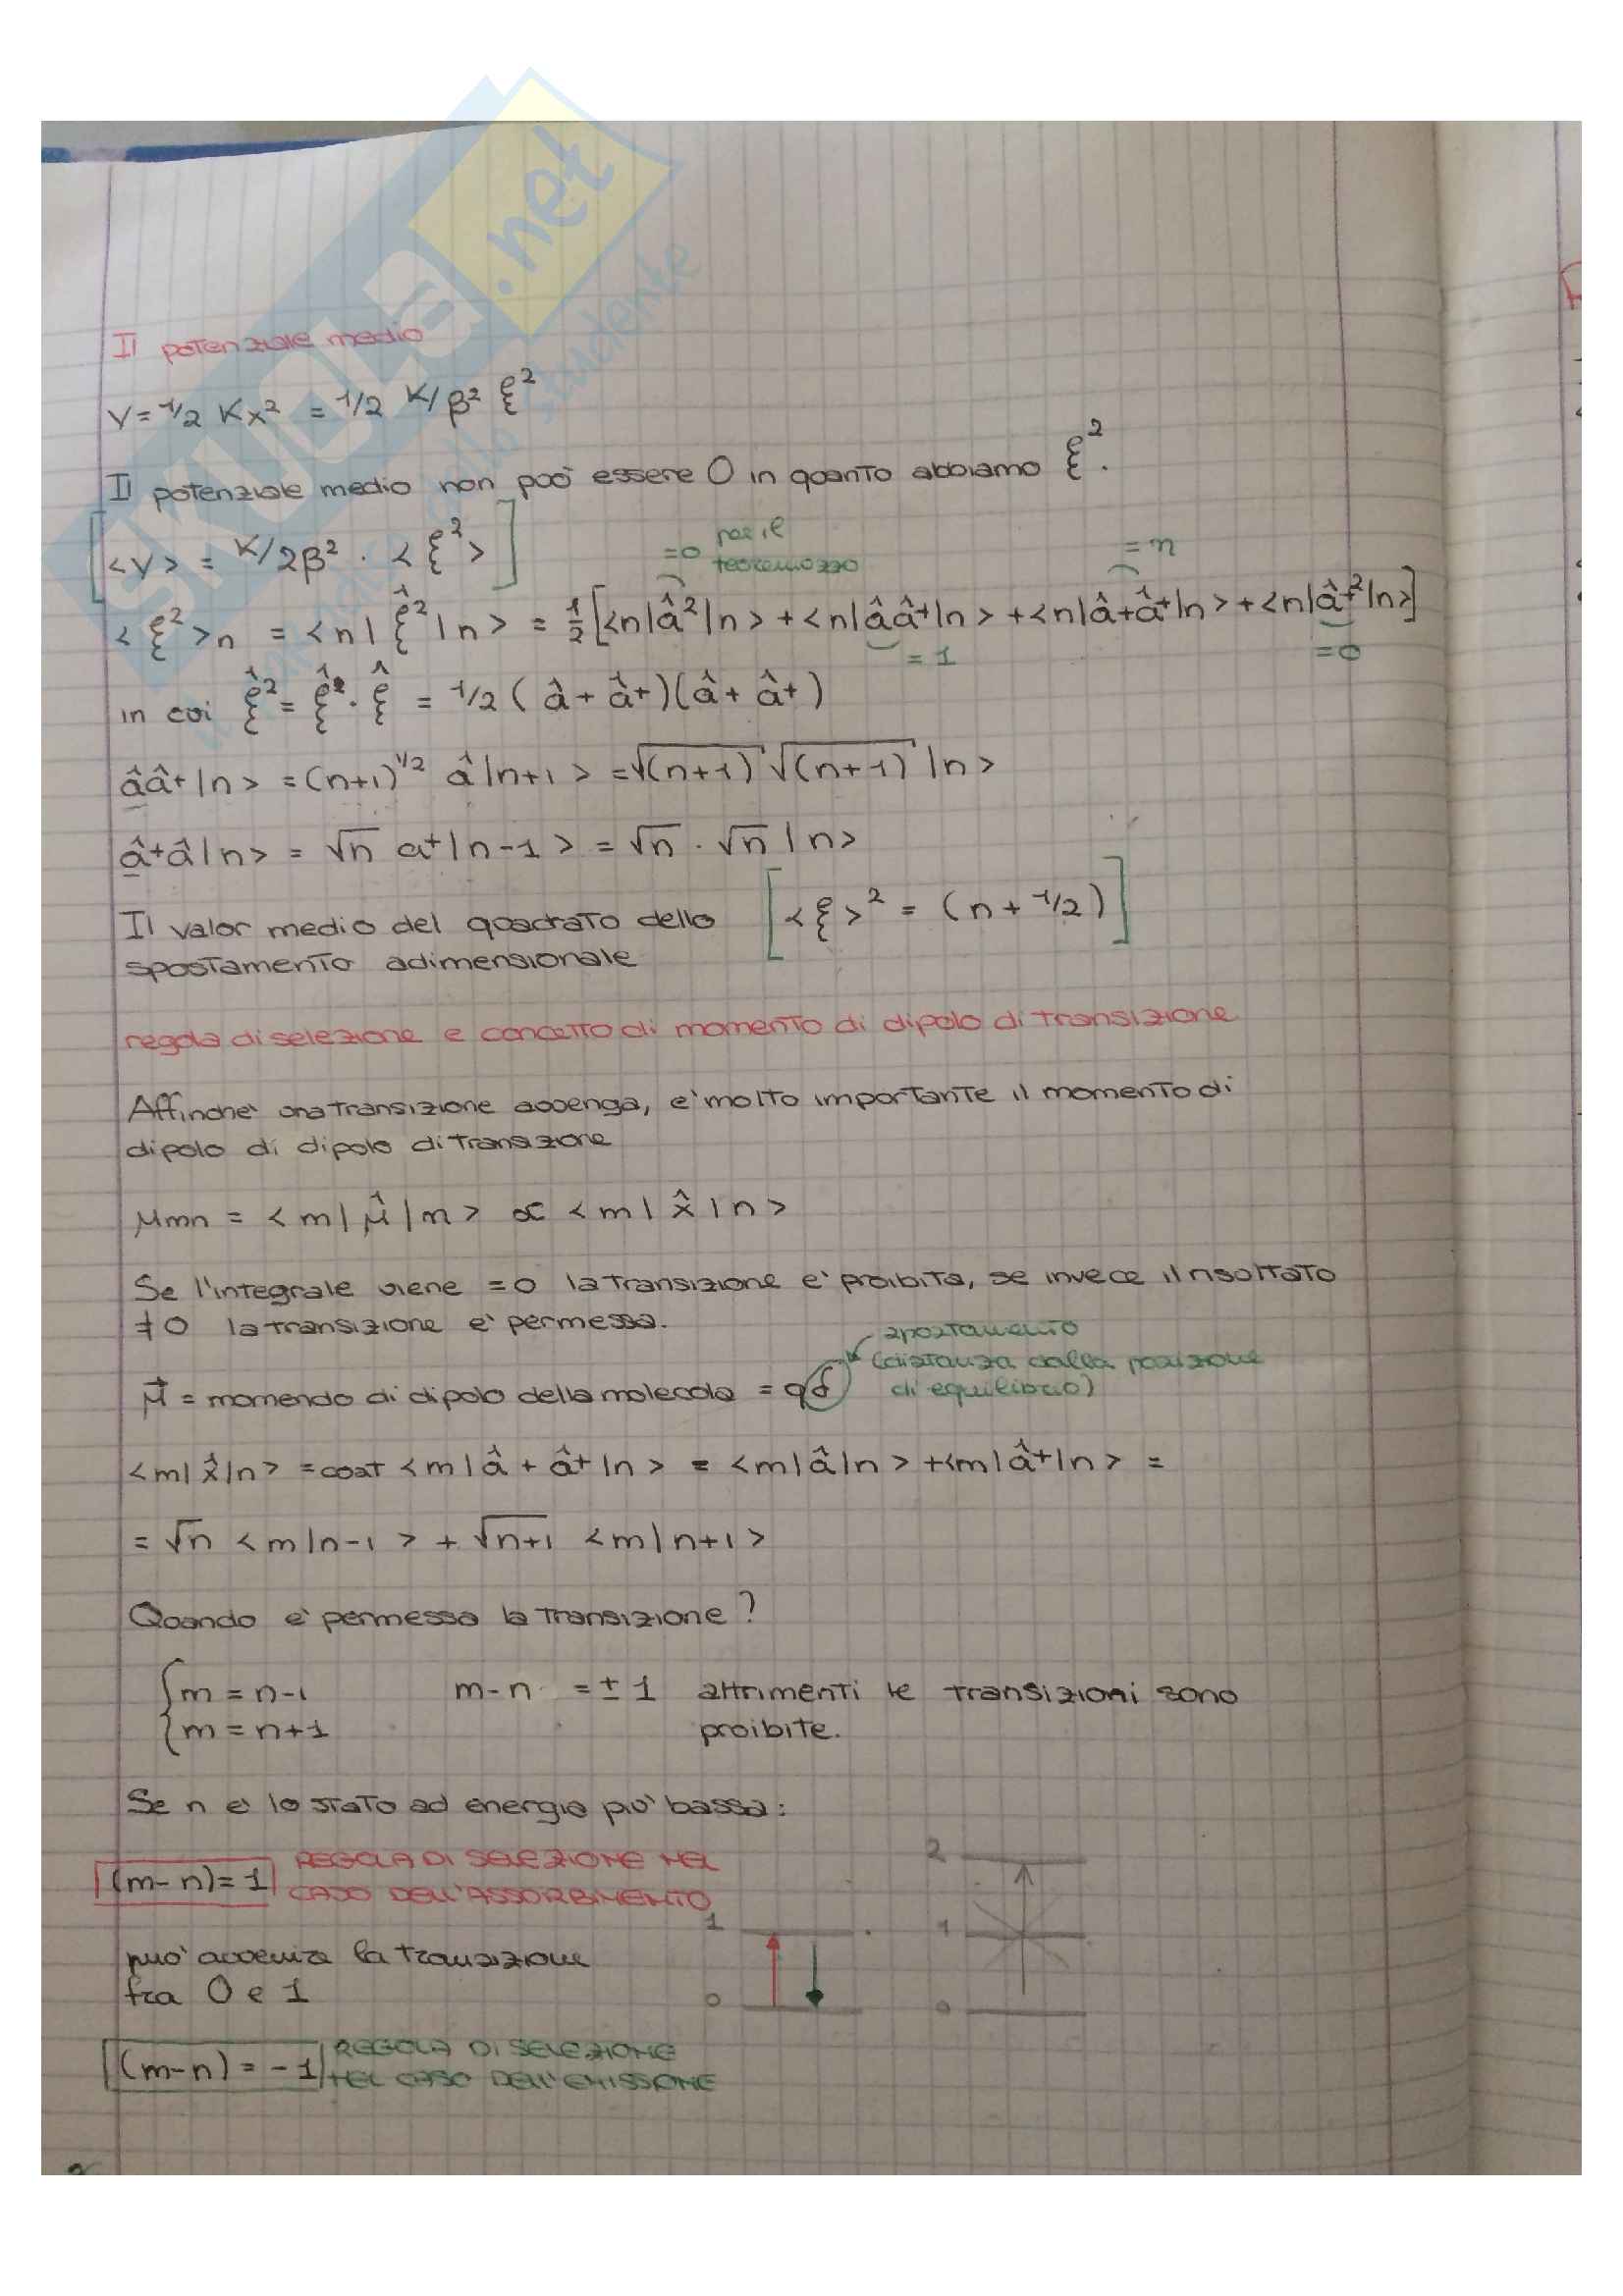 SKUOLA.net
Il potenziale medio
V = 1/2 Kx² = 1/2 K/β² ξ²
Il potenziale medio non può essere 0 in quanto abbiamo ξ².
<V> = K/2β² · <ξ²>
=0 per il
teoremozzo
= n
<ξ²>n = <n|ξ̂²|n> = 1/2 [<n|â²|n> + <n|ââ⁺|n> + <n|â+â⁺|n> + <n|â⁺²|n>]
= 1
=0
in cui ξ̂² = ξ̂ · ξ̂ = 1/2 (â + â⁺)(â + â⁺)
ââ⁺|n> = (n+1)^1/2 â|n+1> = √(n+1) √(n+1) |n>
â⁺â|n> = √n a⁺|n-1> = √n · √n |n>
Il valor medio del quadrato dello [<ξ>² = (n + 1/2)]
spostamento adimensionale
regola di selezione e concetto di momento di dipolo di transizione
Affinche' una transizione avvenga, e' molto importante il momento di
dipolo di dipolo di transizione
μmn = <m|μ̂|n> ∝ <m|x̂|n>
Se l'integrale viene =0 la transizione e' proibita, se invece il risultato
≠0 la transizione e' permessa.
spostamento
(distanza dalla posizione
di equilibrio)
μ⃗ = momendo di dipolo della molecola = qd
<m|x̂|n> = cost <m|â + â⁺|n> = <m|â|n> + <m|â⁺|n> =
= √n <m|n-1> + √n+1 <m|n+1>
Quando e' permessa la transizione?
{ m = n-1 m-n = ± 1 altrimenti le transizioni sono
m = n+1 proibite.
Se n e' lo stato ad energia piu' bassa:
(m-n)=1 REGOLA DI SELEZIONE NEL
CASO DELL'ASSORBIMENTO
2
1
1
può avvenire la transizione
fra 0 e 1
0
0
(m-n) = -1 REGOLA DI SELEZIONE
NEL CASO DELL'EMISSIONE